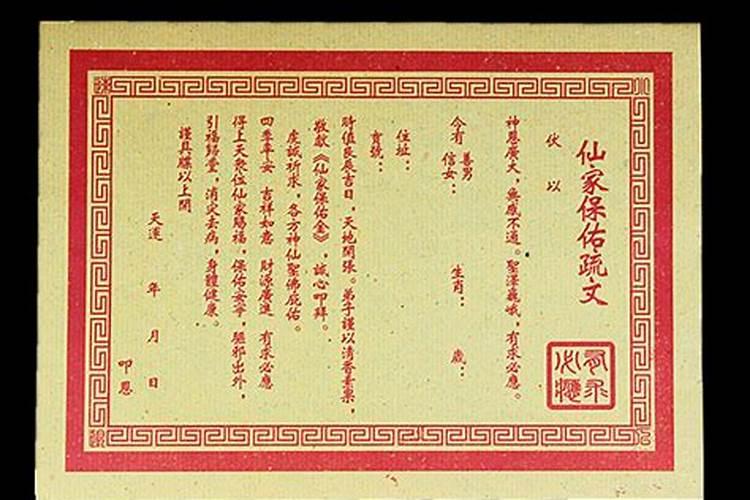 仙家保佑疏文
有求必應
伏以
神恩廣大，無感不通。聖澤巍峨，有求必應。
今有 善男 信女： 生肖： 歲：
住址：
寶號：
時值良辰吉日，天地開張。弟子謹以清香素果，
敬獻《仙家保佑金》，誠心叩拜。
虔誠祈求，各方神仙聖佛庇佑。
四季平安 吉祥如意 財源廣進 有求必應
得上天眾位仙家賜福，保佑安寧，驅邪出外，
引福歸堂，消災去病，身體健康。
謹具牒以上聞
天運 年 月 日
叩恩